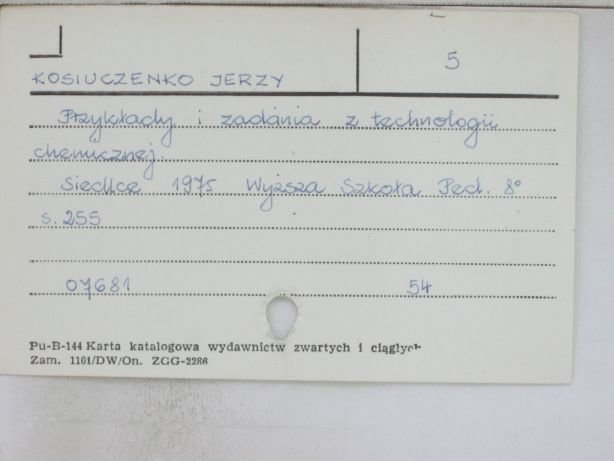 KOSIUCZENKO JERZY
5
Przykłady i zadania z technologii
chemicznej.
Siedlce 1975 Wyższa Szkoła Ped. 8°
s. 255
07681 54
Pu-B-144 Karta katalogowa wydawnictw zwartych i ciągłych
Zam. 1101/DW/On. ZGG-2286